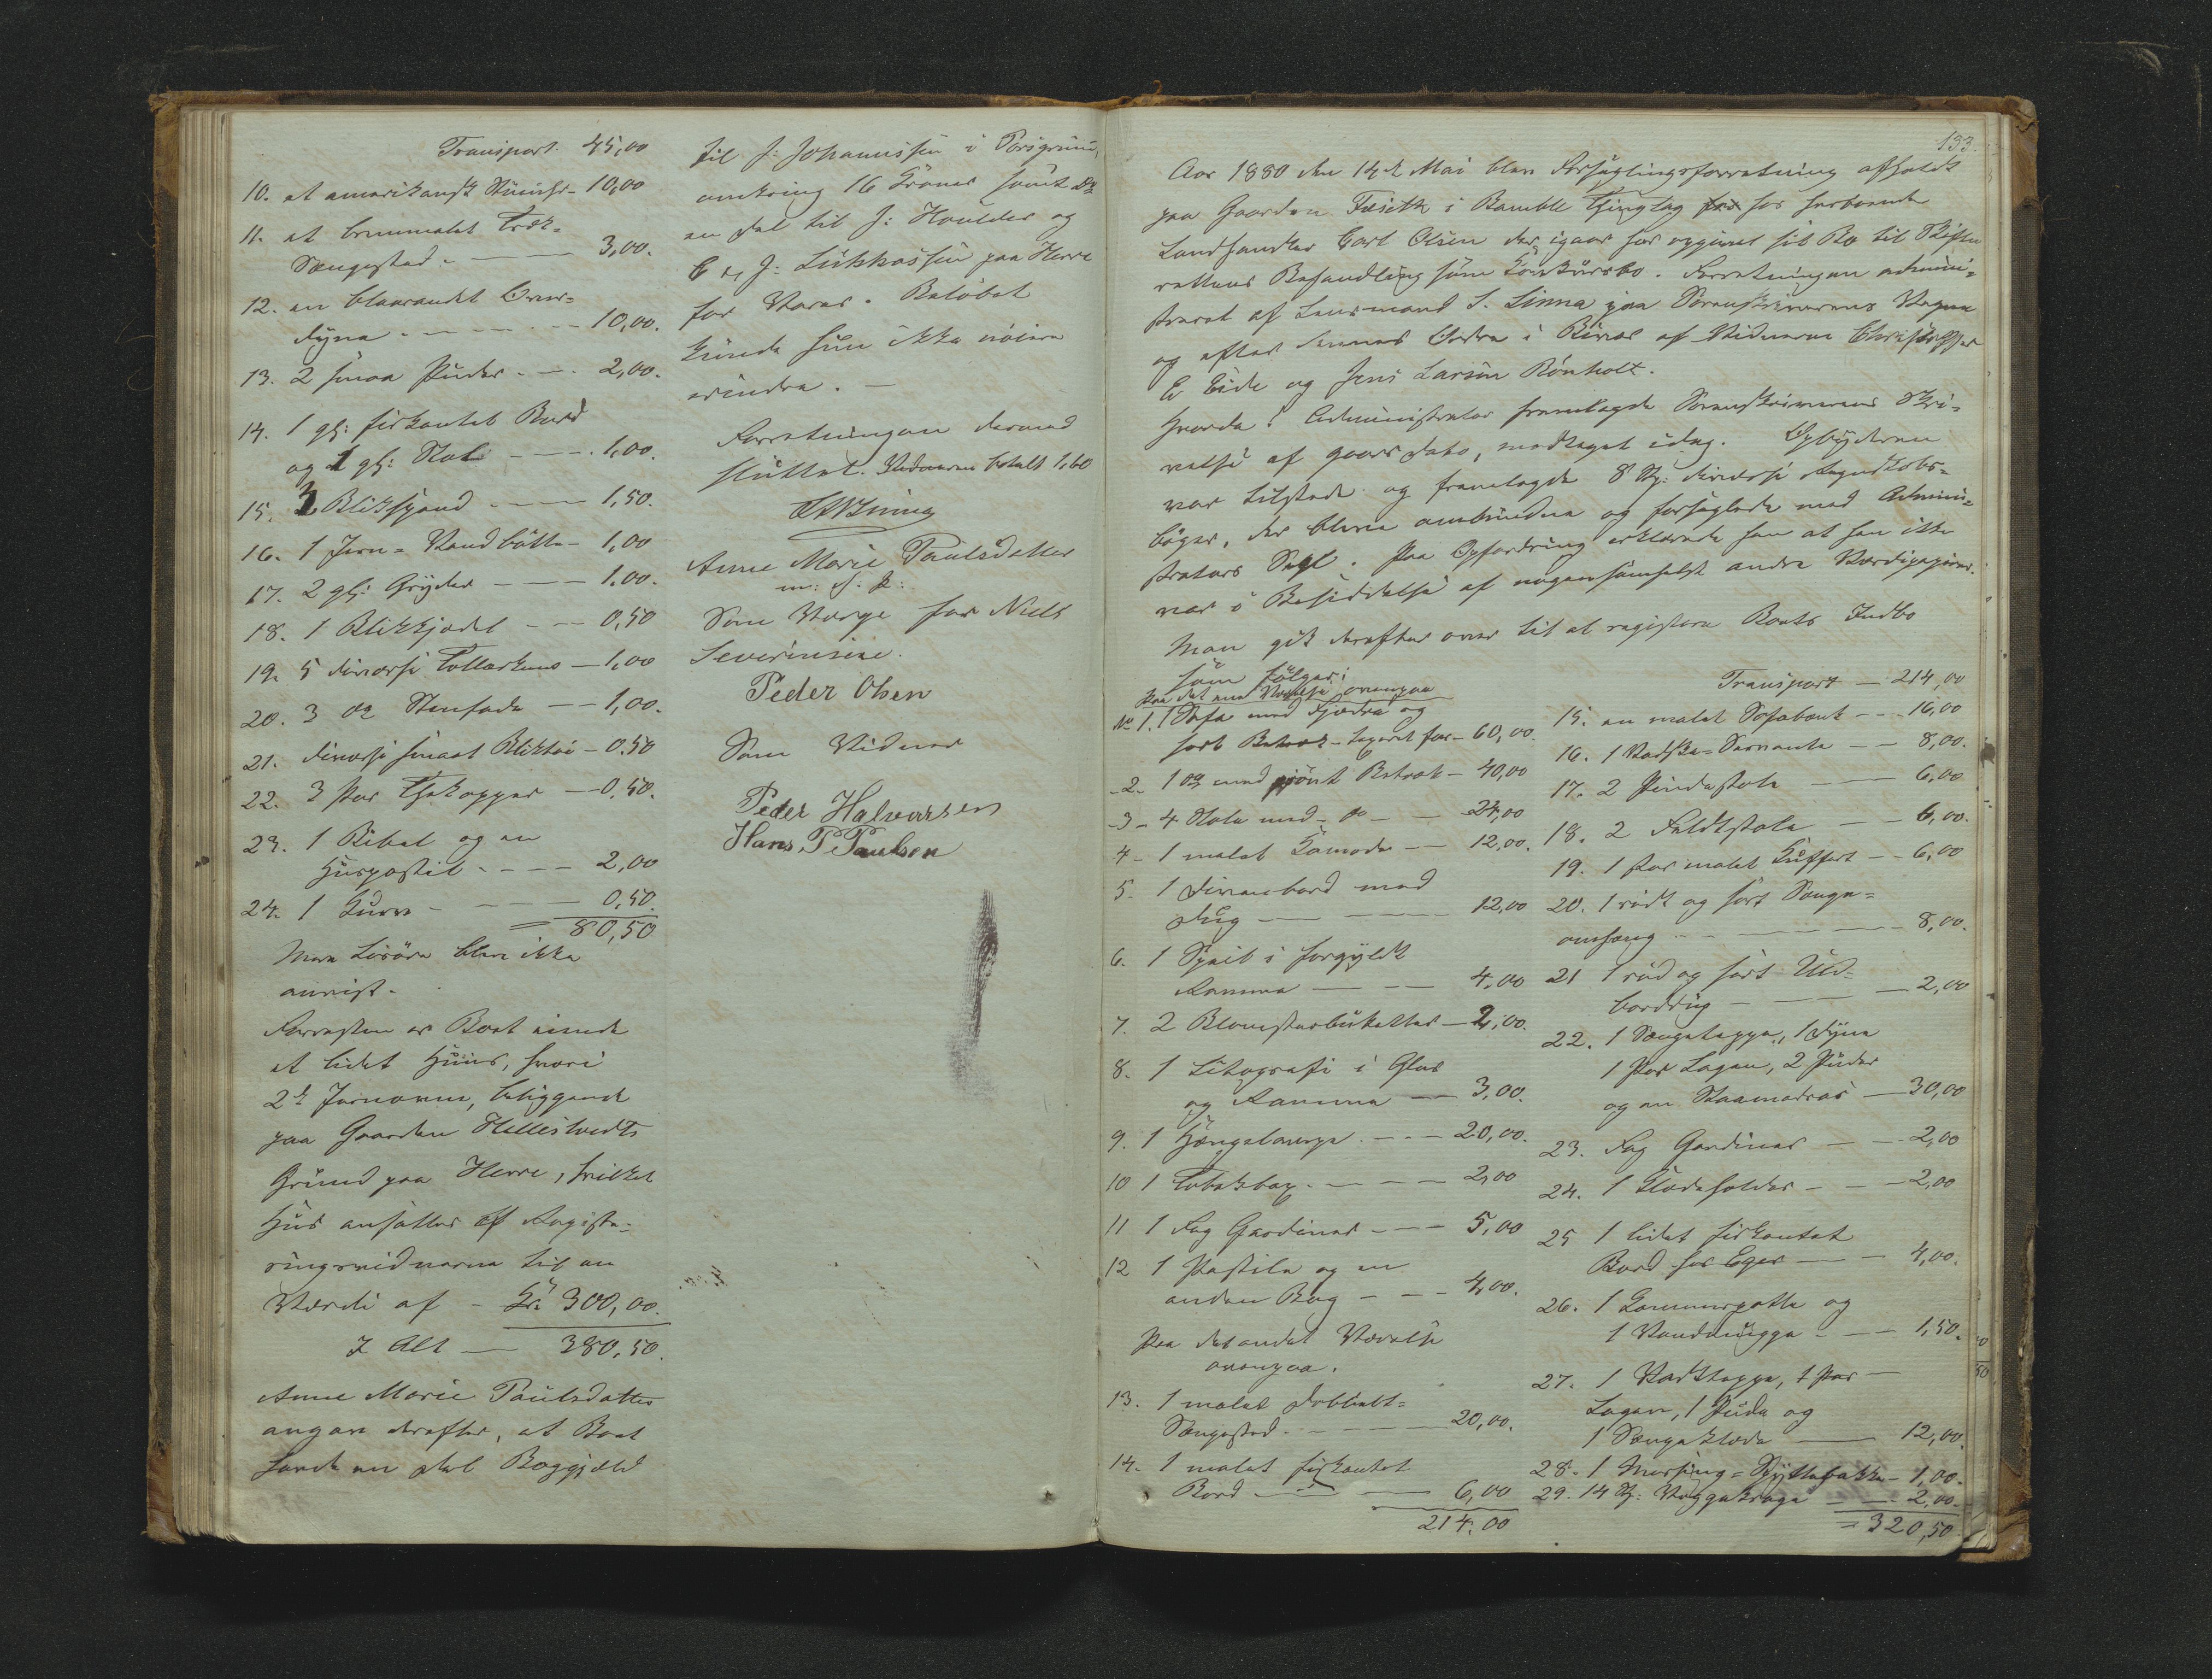 Transport. 45,00
10. et amerikansk Stueuhr - 10,00
11. et brunmalet Træk-
Sengested. - 3,00.
12. en blaarandet Over-
dyne - 10,00.
13. 2 smaa Puder. - 2,00.
14. 1 gl: firkantet Bord
og 1 gl: Stol - 1,00.
15. 3 Blikspand - 1,50.
16. 1 Jern-Vandbøtte - 1,00
17. 2 gl: Gryder - 1,00.
18. 1 Blikkjedel - 0,50
19. 5 diverse Tallerkener - 1,00
20. 3 do Stenfade - 1,00.
21. diverse smaat Bliktøi - 0.50
22. 3 Par Thekopper - 0,50.
23. 1 Bibel og en
Huspostil - 2,00
24. 1 Kurv - 0,50.
= 80,50
Mere Løsøre blev ikke
anvist.
Forresten er Boet eiende
et lidet Huus, hvori
2de Jernovne, beliggende
paa Gaarden Hellestvedts
Grund paa Herre, hvilket
Hus ansattes af Registe-
ringsvidnerne til en
Værdi af - Kr 300,00.
I Alt - 380,50.
Anne Marie Paulsdatter
angav derefter, at Boet
havde en Del Boggjæld
til J: Johannessen i Porsgrund,
omkring 16 Kroner samt do
en Del til J: Houlder og
C og J: Lukkassen paa Herre
for Varer. Beløbet
kunde hun ikke nøiere
erindre. -
Forretningen dermed
sluttet. Vidnerne betalt 1,60
Anne Marie Paulsdatter
m: f. P:
Som Værge for Niels
Severinsen.
Peder Olsen
Som Vidner
Peder Halvorsen
Hans P Paulsen
133.
Aar 1880 den 14de Mai blev Forseglingsforretning afholdt
paa Gaarden Fæsik i Bamble Thinglag hos herboende
Landhandler Carl Olsen der igaar har opgivet sit Bo til Skifte
rettens Behandling som Konkursbo. Forretningen admini-
streret af Lensmand S. Linna paa Sorenskriverens Vegne
og efter dennes Ordre i Overvær af Vidnerne Christopher
E Eide og Jens Larsen Rønholt.
Hvorda: Administrator fremlagde Sorenskriverens Skri-
velse af gaars Dato, modtaget idag. Opbyderen
var tilstede og fremlagde 8 St: diverse Regnskabs-
bøger, der bleve ombundne og forseglede med Admini-
strators Segl. Paa Opfordring erklærede han at han ikke
var i Besiddelse af nogensomhelst andre Værdipapirer.
Man gik derefter over til at registere Boets Indbo
som følger:
Paa det ene Værelse ovenpaa
No 1. 1 Sofa med Fjedre og
sort Betræk - taxeret for - 60,00.
- 2 - 1 do med grønt Betræk - 40,00
- 3 - 4 Stole med - do - 24,00
4 - 1 malet Komode - 12,00.
5. 1 Divanbord med
Dug - 12,00
6. 1 Speil i forgyldt
Ramme - 4,00
7. 2 Blomsterbuketter - 2,00.
8. 1 Litografi i Glas
og Ramme - 3,00.
9. 1 Hængelampe - 20,00.
10 1 Tobaksbox - 2,00
11 1 Fag Gardiner - 5,00
12 1 Postile og en
anden Bog - 4,00.
Paa det andet Værelse
ovenpaa.
13. 1 malet Dobbelt-
Sengested. - 20,00.
14. 1 malet firkantet
Bord - 6,00
214,00
Transport - 214,00
15. en malet Sofabænk - 16,00
16. 1 Vadske-Servante - 8,00.
17. 2 Pindestole - 6,00
18. 2 Feldtstole - 6,00.
19. 1 Par malet Kuffert - 6,00
20. 1 rødt og sort Senge-
omhæng - 8,00.
21 1 rød og sort Uld-
borddug - 2,00
22. 1 Sengeteppe, 1 Dyne
1 Par Lagen, 2 Puder
og en Straamadras - 30,00
23. Fag Gardiner - 2,00
24. 1 Klædeholder - 2,00
25 1 lidet firkantet
Bord hos Eger - 4,00.
26. 1 Kammerpotte og
1 Vandmugge - 1,50.
27. 1 Vadtteppe, 1 Par
Lagen, 1 Pude og
1 Sengeklæde - 12,00.
28. 1 Messing-Spyttebakke - 1,00.
29. 14 St: Væggekroge - 2,00.
= 320,50